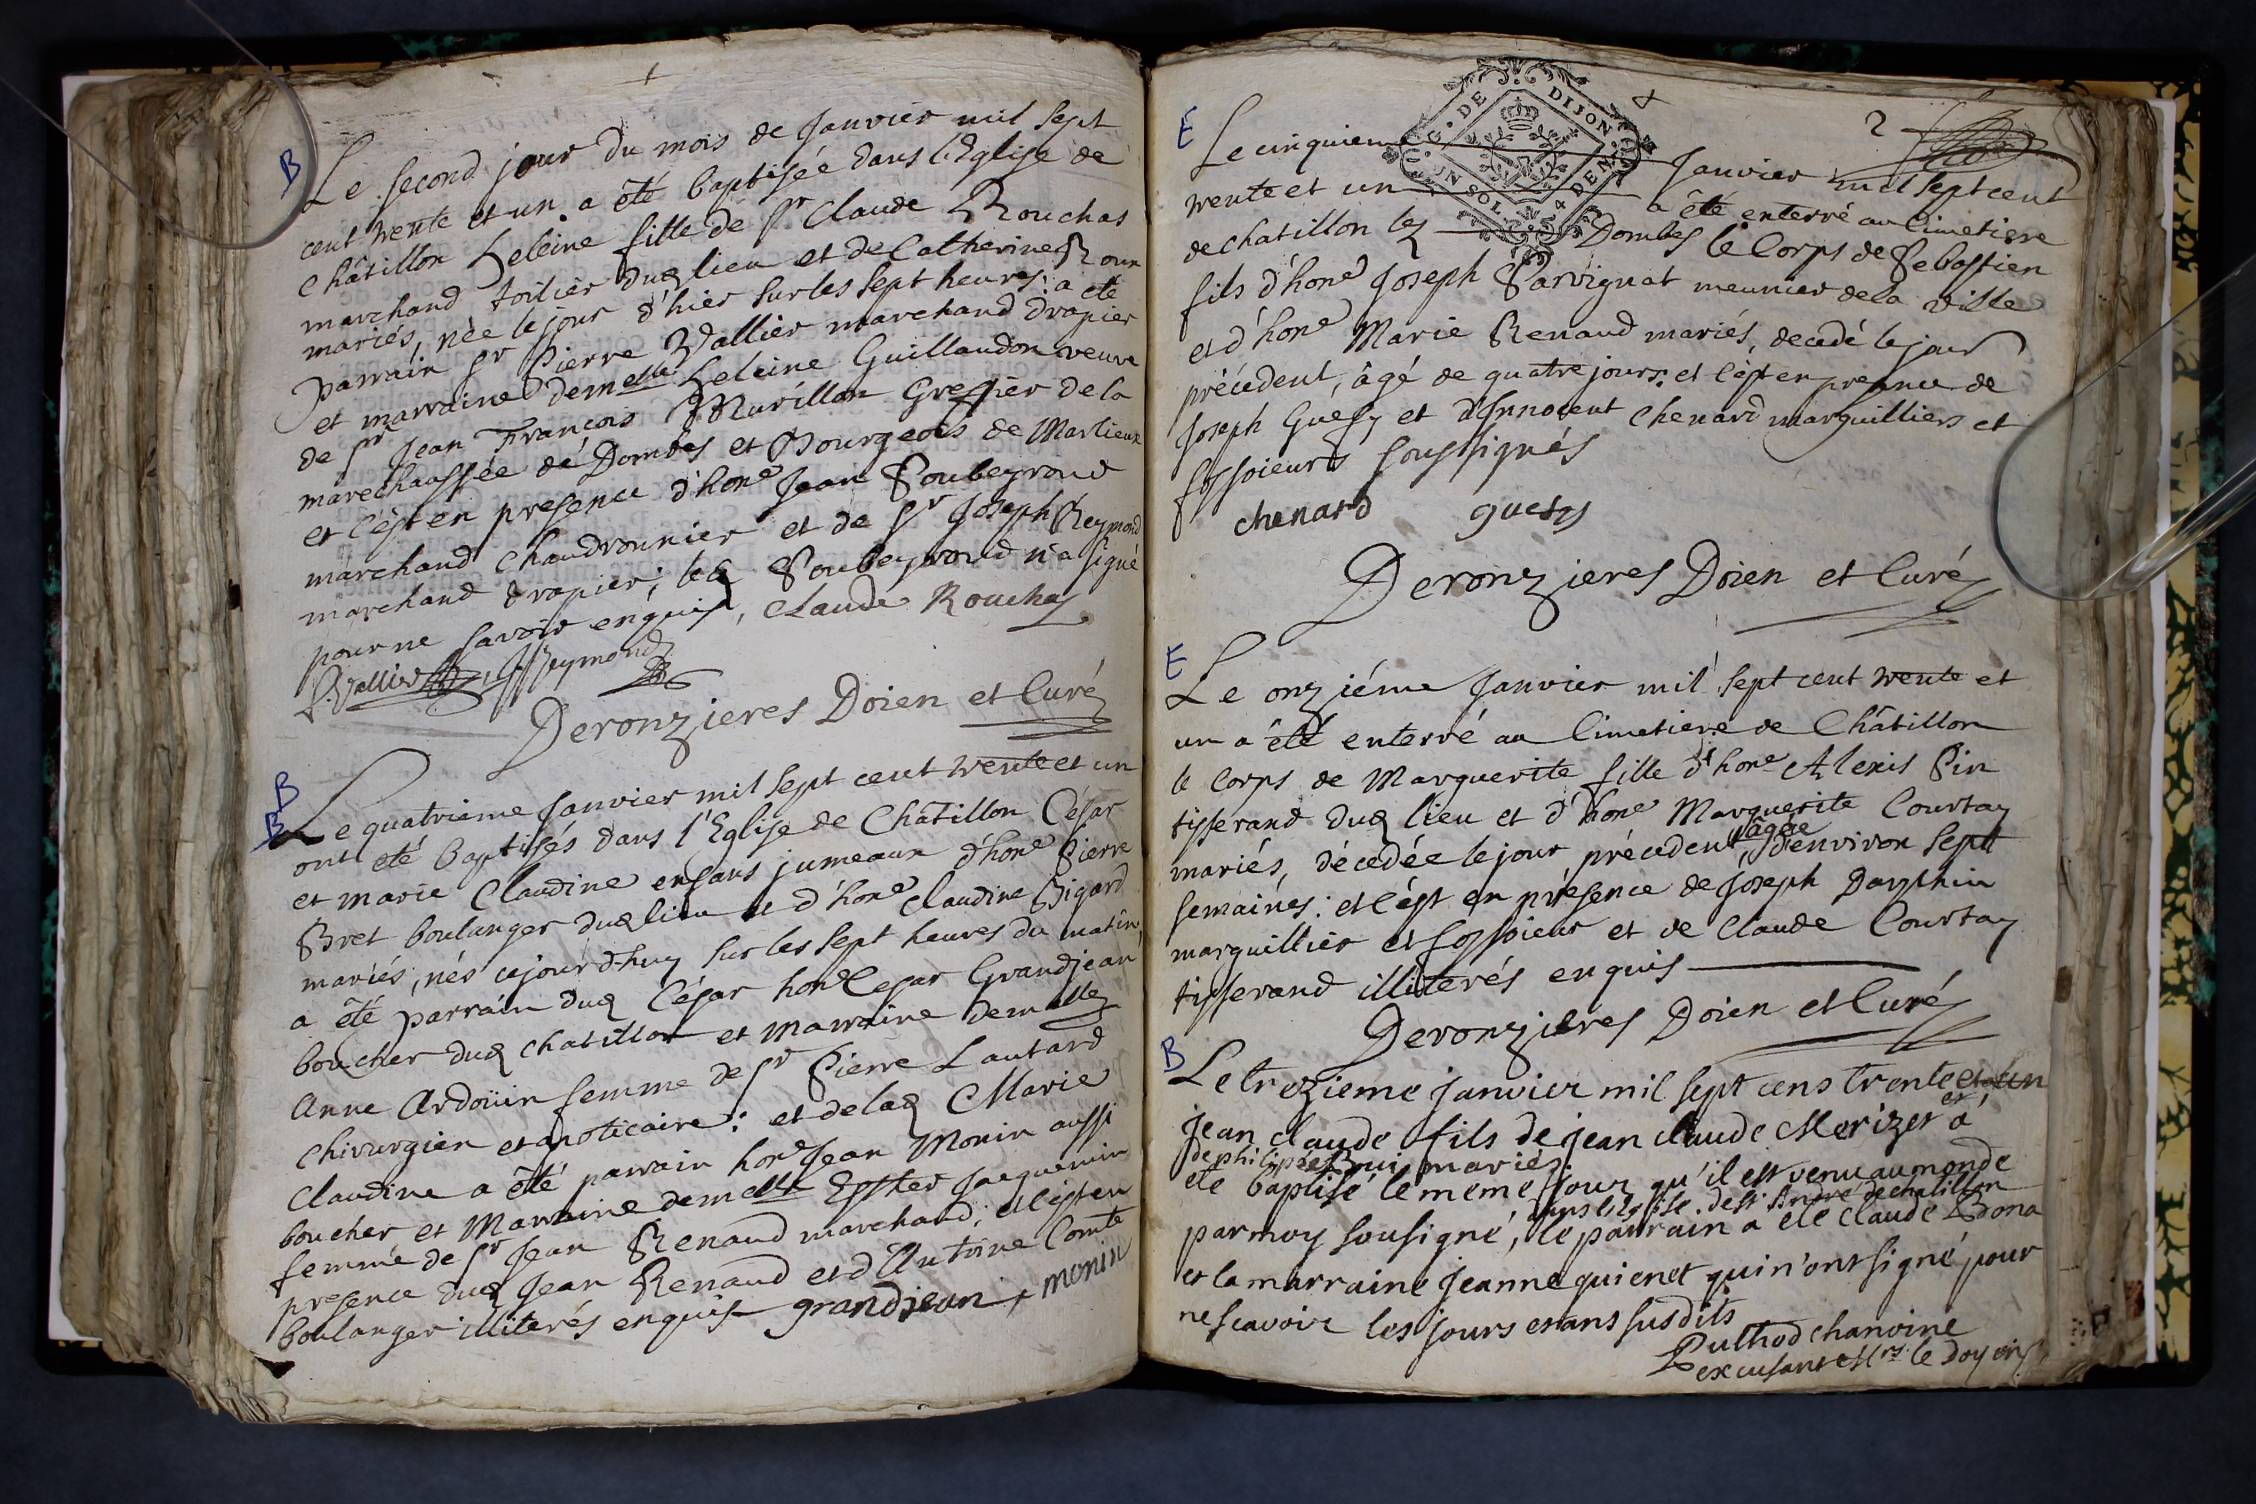 B
Le second jour du mois de Janvier mil sept
cent trente et un a êté baptisée dans l'Eglise de
Châtillon Heleine fille de Sr Claude Rouchas
marchand toilier dud lieu et de Catherine Roux
mariés, née le jour d'hier sur les sept heures: a eté
parrain Sr Pierre Vallier marchand drapier
et marraine demelle Heleine Guillaudon veuve
de Sr Jean François Murillon Greffier de la
marechaussée de Dombes et Bourgeois de Marlieux
et c'est en presence d'hone Jean Soubeyrand
marchand chaudronnier et de Sr Joseph Reymond
marchand drapier; led Soubeyrand n'a signé
pour ne savoir enquis, Claude Rouchas
P. Vallier, J Reymond
Deronzieres Doien et Curé
B
B
Le quatrieme Janvier mil sept cent trente et un
ont eté baptisés dans l'Eglise de Châtillon César
et marie Claudine enfans jumeaux d'hone Pierre
Bret boulanger dud lieu et d'hone Claudine Bigard
mariés, nés cejourd-huy sur les sept heures du matin,
a êté parrain dud César hone Cesar Grandjean
boucher dud chatillon et marraine demelle
Anne Ardoüin femme de Sr Pierre Lautard
chirurgien et apoticaire: et de lad Marie
Claudine a êté parrain hone Jean Monin aussi
boucher et Marraine demelle Esther Jaquemin
femme de Sr Jean Renaud marchand; et c'est en
presence dud Jean Renaud et d'Antoine Comte
boulanger illiterés enquis grandjean, monin
2
G. DE DIJON
UN SOL 4 DEN.
E
Le cinquieme Janvier mil sept cent
trente et un a êté enterré au Cimetiere
de chatillon les Dombes le Corps de Sebastien
fils d'hone Joseph Parvignat meunier de la ville
et d'hone Marie Renaud mariés, decedé le jour
précedent, âgé de quatre jours: et c'est en presence de
Joseph Guesy et d'Innocent Chenard marguilliers et
fossoieurs soussignés
chenard guesy
Deronzieres Doien et Curé
E
Le onziéme Janvier mil sept cent trente et
un a êté enterré au Cimetiere de Châtillon
le Corps de Marguerite fille d'hone Alexis Pin
tisserand dud lieu et d'hone Marguerite Courtay
mariés, décedée le jour précedent, âgée d'environ sept
semaines: et c'est en présence de Joseph Dauphin
marguillier et fossoieur et de Claude Courtay
tisserand illiterés enquis
Deronzieres Doien et Curé
B
Le trezieme janvier mil sept cens trente et un
jean claude fils de jean claude Merizet et
de philipée Brui mariés a
eté baptisé le meme jour qu'il est venu au monde
dans l'eglise de st André de chatillon
par moy sousigné, le parrain a eté claude Bona
et la marraine jeanne quienet qui n'ont signé pour
ne scavoir les jours et ans susdits
Puthod chanoine
excusant Mrs le Doyen